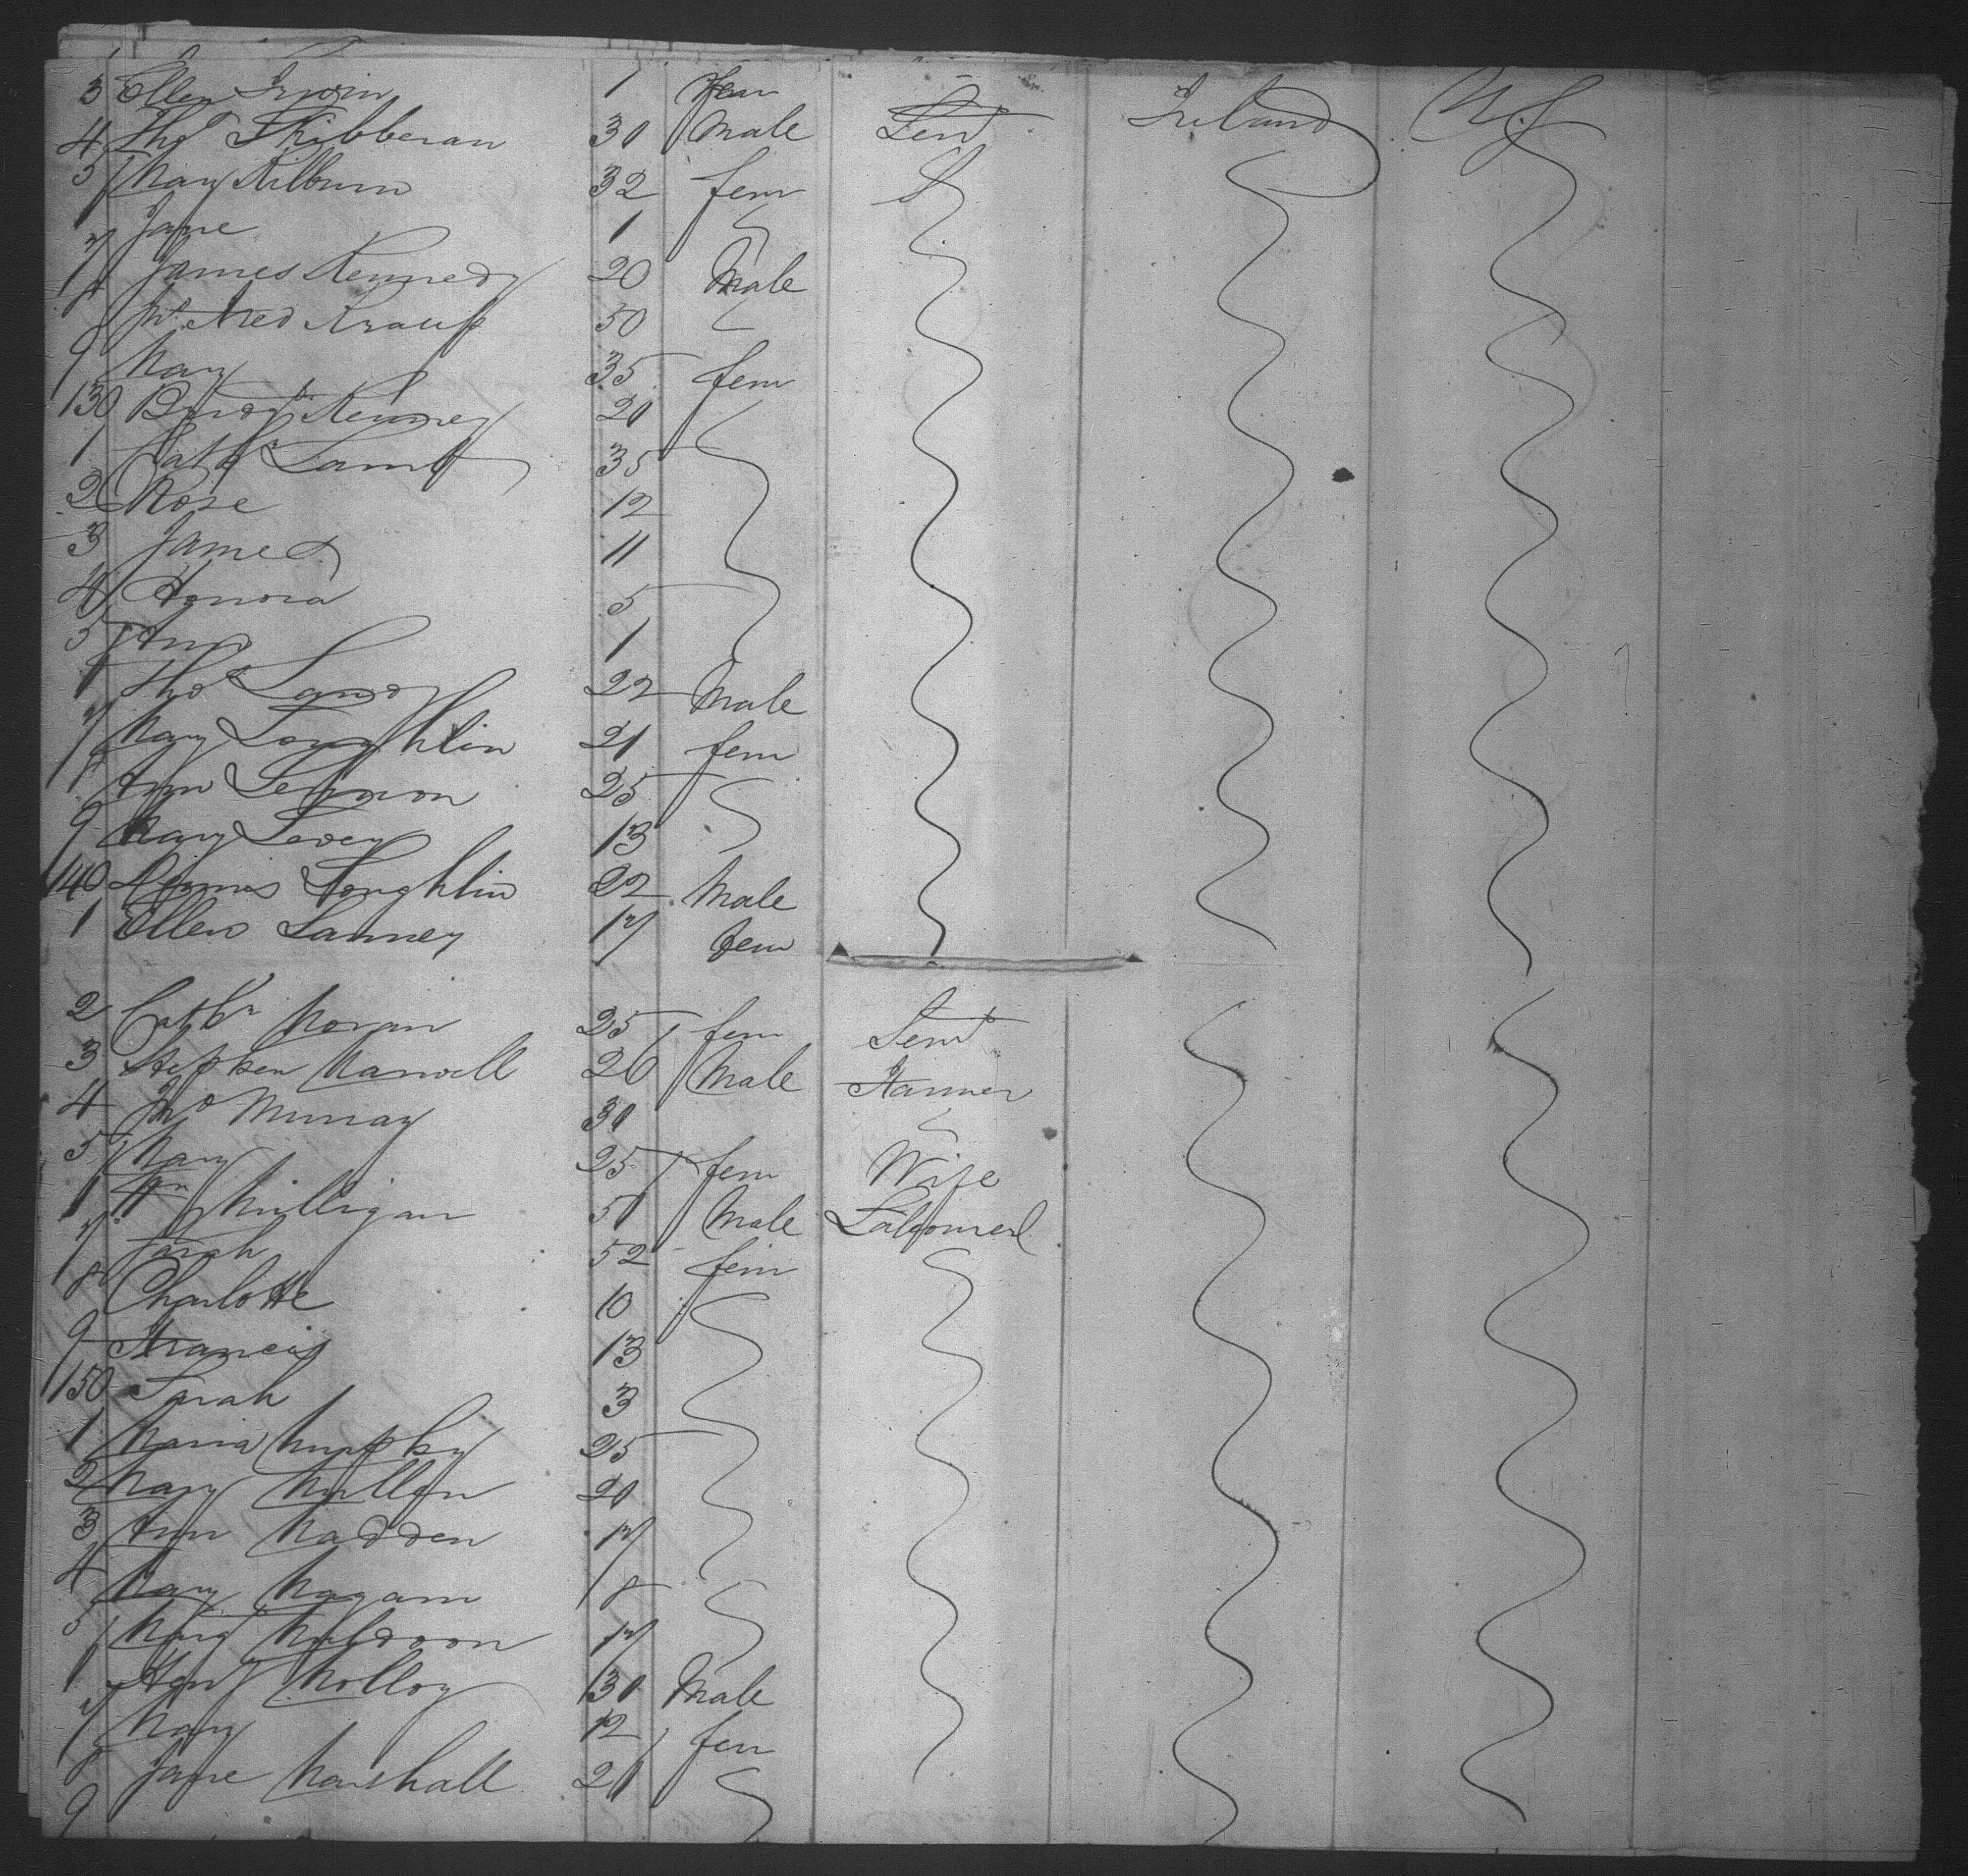 3 Ellen Irwin 1 fem
4 Thos Kibberan 30 Male Servt Ireland U.S
5 Mary Kilburn 32 fem
6 Jane 1
7 James Kennedy 20 Male
8 50
9 Mary 35 fem
130 Bridgt Kenney 20
1 Cath Lamb 35
2 Rose 12
3 James 11
4 Honora 5
5 Ann 1
6 Thos Landy 22 Male
7 Mary Loughlin 21 fem
8 Ann Lennon 25
9 Mary Levey 13
140 Loughlin 22 Male
1 Ellen Lanney 17 fem
2 Cathn Moran 25 fem Servt
3 Stephen Maxwell 26 Male Farmer
4 Jno Murray 30
5 Mary 25 fem Wife
6 Wm Mulligan 50 Male Labourer
7 Sarah 52 fem
8 Charlotte 10
9 Francis 13
150 Sarah 3
1 Maria Murphy 25
2 Mary Mullen 20
3 Ann Madden 17
4 Mary Magan 18
5 Marg Muldoon 17
6 Heny Molloy 30 Male
7 Mary 12 fem
8 Jane Marshall 20
9